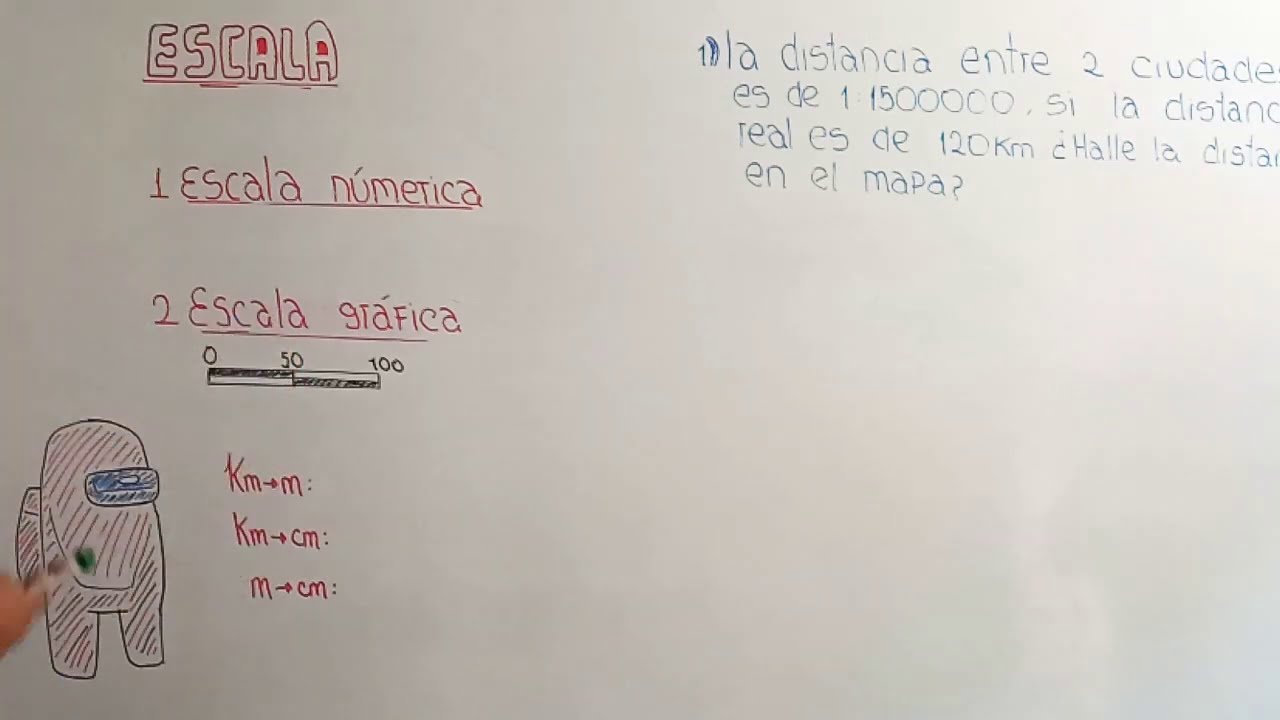 ESCALA
1 Escala númerica
2 Escala gráfica
0 50 100
Km→m:
Km→cm:
m→cm:
1) la distancia entre 2 ciudades
es de 1:1500000. si la distanc
real es de 120Km ¿Halle la distan
en el mapa?